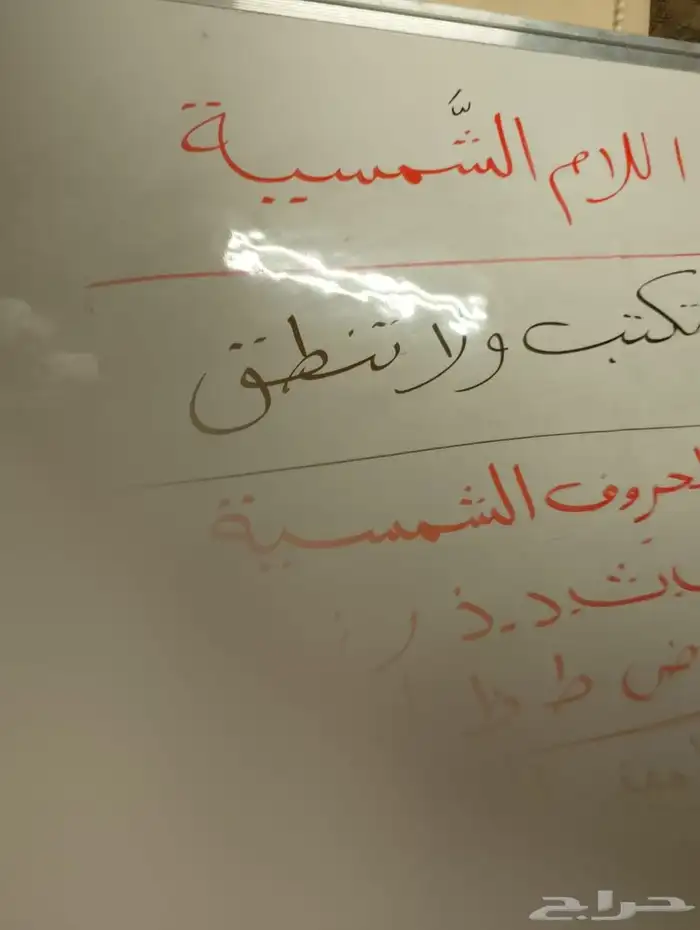 اللام الشَّمسية
تكتب ولا تنطق
الحروف الشمسية
ث د ذ ر
ض ط ظ
حراج